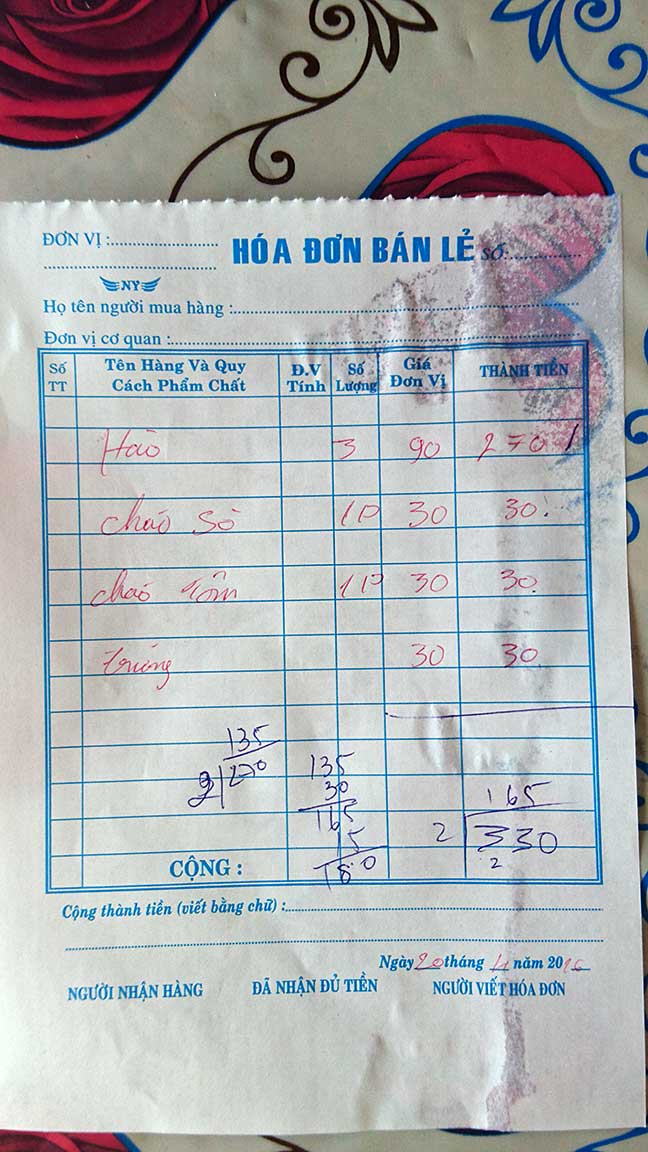 ĐƠN VỊ :
HÓA ĐƠN BÁN LẺ SỐ:
NY
Họ tên người mua hàng :
Đơn vị cơ quan :
Số TT Tên Hàng Và Quy Cách Phẩm Chất Đ.V Tính Số Lượng Giá Đơn Vị THÀNH TIỀN
Hào 3 90 270
cháo sò 1P 30 30
cháo tôm 1P 30 30
trứng 30 30
135
2 270
135
30
165
15
180
165
2 330
2
CỘNG :
Cộng thành tiền (viết bằng chữ) :
Ngày 20 tháng 4 năm 2016
NGƯỜI NHẬN HÀNG ĐÃ NHẬN ĐỦ TIỀN NGƯỜI VIẾT HÓA ĐƠN